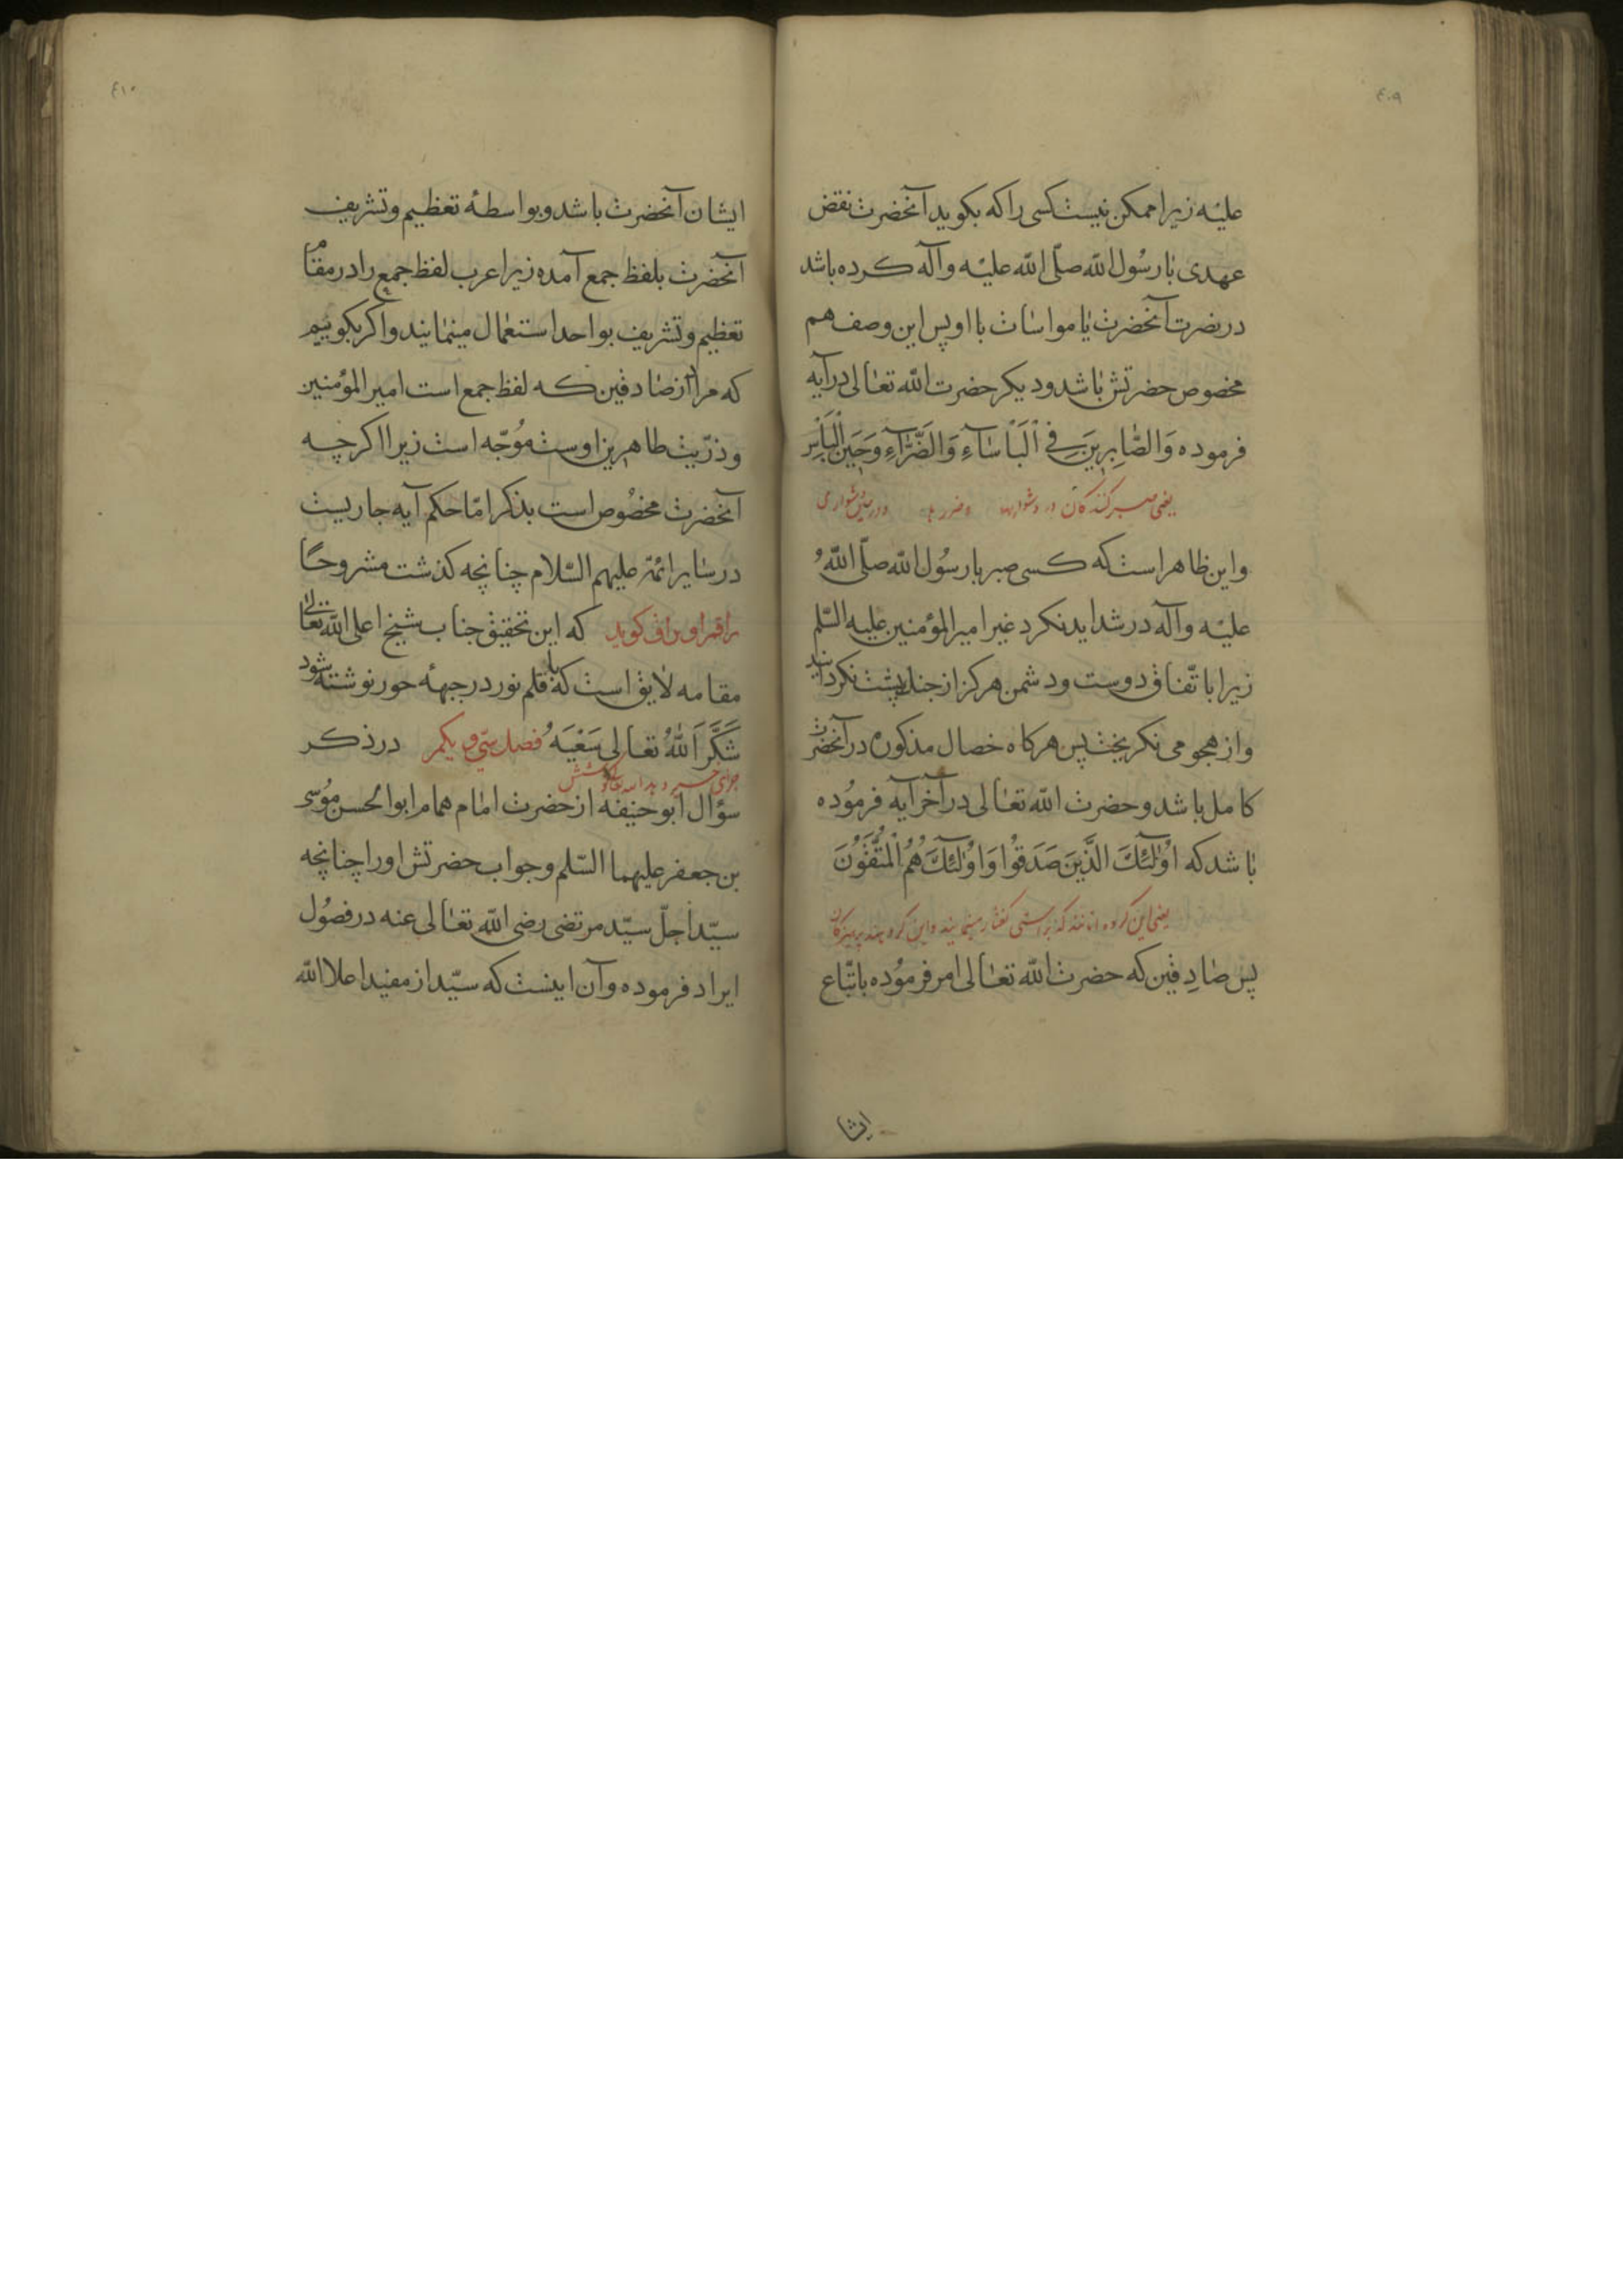 ٤٠٩
علیه زیرا ممکن نیست کسی را که بکوید آنحضرت نقض
عهدی با رسُول الله صلّی الله علیه وآله کرده باشد
در نصرت آنحضرت یا مواسات با او پس این وصف هم
مخصوص حضرتش باشد ودیکر حضرت الله تعالی در آیه
فرموده وَالصَّابِرِینَ فِی اَلبَأسَآءِ وَالضَّرَّآءِ وَحَینَ اَلبَأسِ
یعنی صبر کنندکان در دشواریها وضرر ها
واین ظاهر است که کسی صبر با رسُول الله صلّی اللهُ
علیه وآله در شداید نکرد غیر امیر المؤمنین علیه السّلم
زیرا باتّفاق دوست ودشمن هرکز از جنک پشت نکردانید
واز هجومی نکریخت پس هرکاه خصال مذکوره در آنحضرت
کامل باشد وحضرت الله تعالی در آخر آیه فرمُوده
باشد که اوُلٰئِكَ الَّذَینَ صَدَقوُا وَاوُلٰئِكَ هُمُ الْمُتَّقوُنَ
یعنی این کروه آنانند که براستی کفتار مینمایند واین کروهند پرهیزکاران
پس صادِقین که حضرت الله تعالی امر فرمُوده باتّباع
ایشا
٤١٠
ایشان آنحضرت باشد وبواسطهٔ تعظیم وتشریف
آنحضرت بلفظ جمع آمده زیرا عرب لفظ جمع را در مقام
تعظیم وتشریف بواحد استعمال مینمایند واکر بکوییم
که مراد از صادقین که لفظ جمع است امیر المؤمنین
وذرّیت طاهرین اوست مُوَجّه است زیرا اکرچه
آنحضرت مخصُوص است بذکر امّا حکم آیه جاریست
در سایر ائمّه علیهم السّلام چنانچه کذشت مشروحًا
راقم اوراق کوید که این تحقیق جناب شیخ اعلی الله تعالی
مقامه لایق است که با قلم نور در جبههٔ حور نوشته شود
شَکَّرَ اَللهُ تعالی سَعْیَهُ فصل سیّ و یکم در ذکر
جزای خیر دهد الله تعالی کوشش
سؤال ابو حنیفه از حضرت امام همام ابو الحسن مُوسی
بن جعفر علیهما السّلم وجواب حضرتش اورا چنانچه
سیّد اجلّ سیّد مرتضی رضی الله تعالی عنه در فصُول
ایراد فرموده وآن اینست که سیّد از مفید اعلا الله